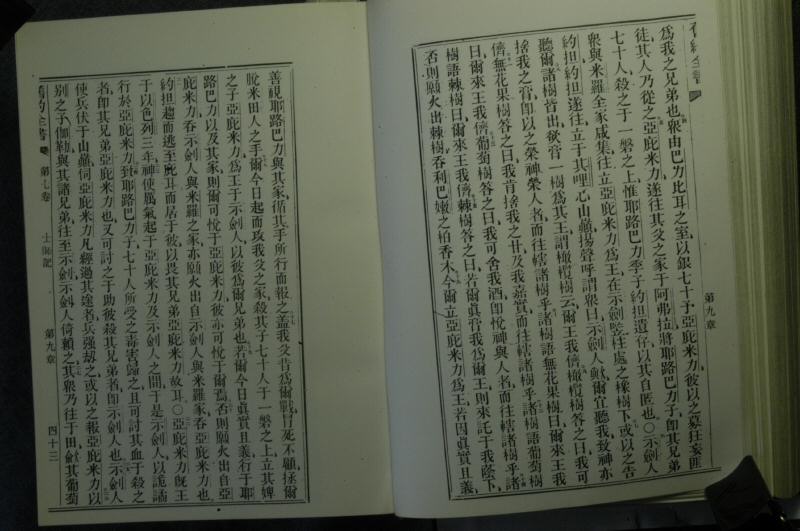 舊約全書
第九章
爲我之兄弟也衆由巴力比耳之室以銀七十予亞庇米力彼以之募狂妄匪
徒其人乃從之亞庇米力遂往其父之家于阿弗拉將耶路巴力子卽其兄弟
七十人殺之于一磐之上惟耶路巴力季子約担遺存以其自匿也〇示劍人
衆與米羅全家咸集往立亞庇米力爲王在示劍豎柱處之橡樹下或以之告
約担約担遂往立于其哩心山巔揚聲呼謂衆曰示劍人歟爾宜聽我致神亦
聽爾諸樹皆出欲膏一樹爲其王謂橄欖樹云爾王我儕橄欖樹答之曰我可
捨我之膏卽以之榮神榮人者而往轄諸樹乎諸樹語無花果樹曰爾來王我
儕無花果樹答之曰我肯捨我之甘及我嘉實而往轄諸樹乎諸樹語葡萄樹
曰爾來王我儕葡萄樹答之曰我可舍我酒卽悅神與人者而往轄諸樹乎諸
樹語棘樹曰爾來王我儕棘樹答之曰若爾眞膏我爲爾王則來託于我蔭下
否則願火出棘樹吞利巴嫩之柏香木今爾立亞庇米力爲王若因眞實且義
善視耶路巴力與其家循其手所行而報之蓋我父昔爲爾戰冒死不顧拯爾
脫米田人之手爾今日起而攻我父之家殺其子七十人于一磐之上立其婢
之子亞庇米力爲王于示劍人以彼爲爾兄弟也若爾今日眞實且義行于耶
路巴力以及其家則爾可悅于亞庇米力彼亦可悅于爾焉否則願火出自亞
庇米力吞示劍人與米羅之家亦願火出自示劍人與米羅家吞亞庇米力也
約担趨而逃至耳而居于彼以畏其兄弟亞庇米力故耳〇亞庇米力旣王
于以色列三年神使厲氣起于亞庇米力及示劍人之間于是示劍人以詭譎
行於亞庇米力致耶路巴力子七十人所受之毒害歸之且可討其血于殺之
者卽其兄弟亞庇米力也又可討之于助彼殺其兄弟者卽示劍人也示劍人
使兵伏于山巔伺亞庇米力凡經過其途者兵强刼之或以之報亞庇米力以
别之子伽勒與其諸兄弟往至示劍示劍人倚賴之其衆乃往于田斂其葡萄
舊約全書 第七卷 士師記 第九章 四十三